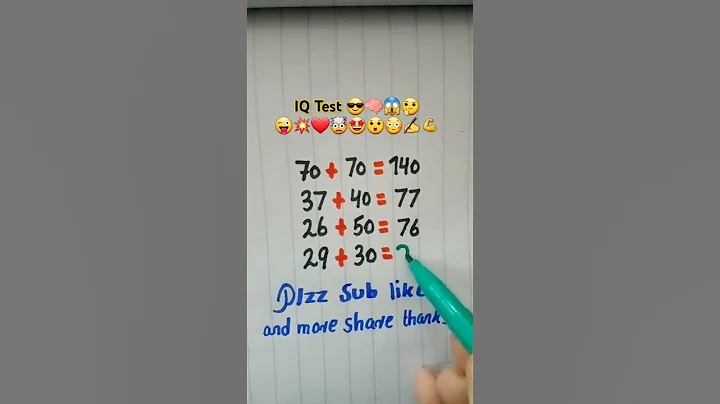 IQ Test 😎🧠😱🤔
😜💥❤️🤯🤩😲😳✍️💪
70 + 70 = 140
37 + 40 = 77
26 + 50 = 76
29 + 30 = ?
Plzz Sub like
and more share thanks